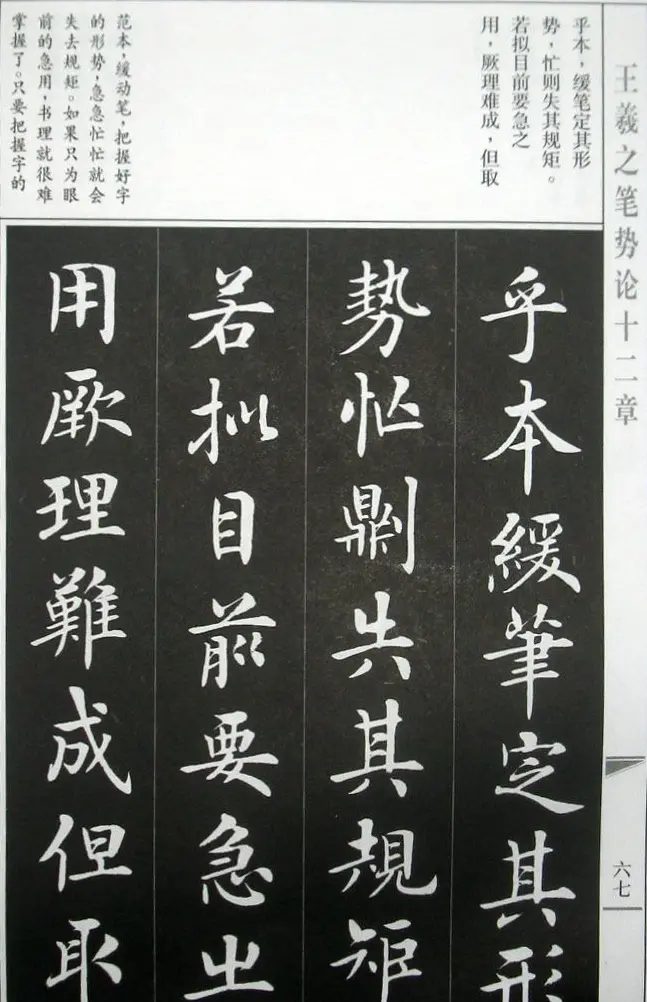 王羲之笔势论十二章
六七
乎本，缓笔定其形
势，忙则失其规矩。
若拟目前要急之
用，厥理难成，但取
范本，缓动笔，把握好字
的形势，急急忙忙就会
失去规矩。如果只为眼
前的急用，书理就很难
掌握了。只要把握字的
乎本緩筆定其形
勢忙劓失其規矩
若拟目前要急之
用厥理難成但取